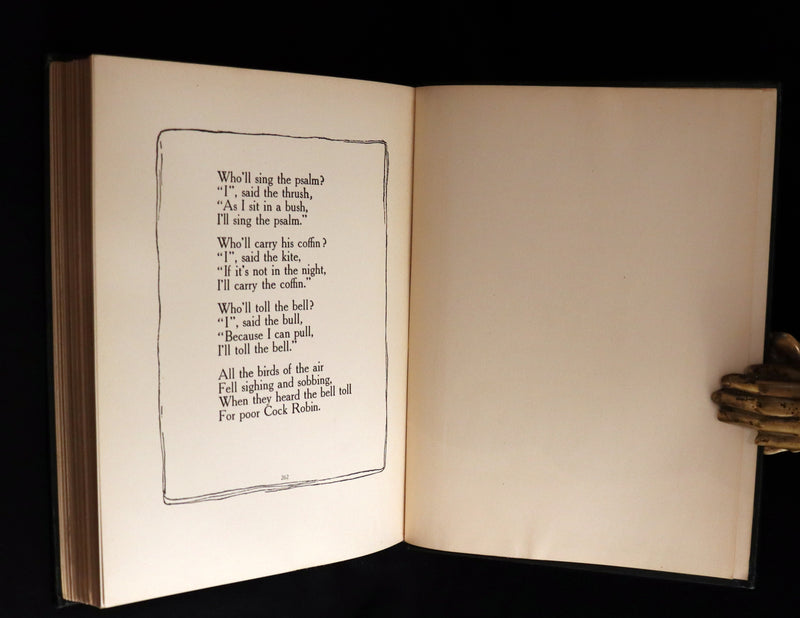 Who'll sing the psalm?
“I”, said the thrush,
“As I sit in a bush,
I'll sing the psalm.”
Who'll carry his coffin?
“I”, said the kite,
“If it's not in the night,
I'll carry the coffin.”
Who'll toll the bell?
“I”, said the bull,
“Because I can pull,
I'll toll the bell.”
All the birds of the air
Fell sighing and sobbing,
When they heard the bell toll
For poor Cock Robin.
262